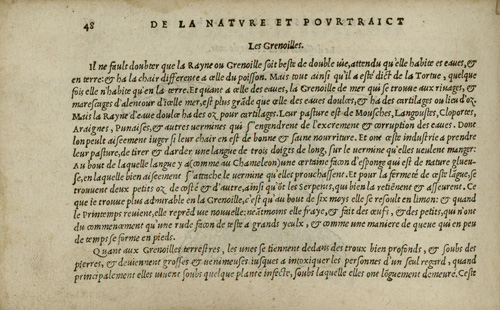 48 DE LA NATVRE ET POVRTRAICT
Les Grenoilles.
Il ne fault doubter que la Rayne ou Grenoille soit beste de double vie, attendu qu'elle habite es eaues, &
en terre: & ha la chair differente a celle du poisson. Mais tout ainsi qu'il a esté dict de la Tortue, quelque
fois elle n'habite qu'en la terre. Et quant a celle des eaues, la Grenoille de mer qui se trouue aux riuages, &
marescages d'alentour d'icelle mer, est plus grāde que celle des eaues doulces, & ha des cartilages ou lieu d'oz.
Mais la Rayne d'eaue doulce ha des oz, pour cartilages. Leur pasture est de Mousches, Langoustes, Cloportes,
Araignes, Punaises, & autres vermines qui s'engendrent de l'excrement & corruption des eaues. Dont
lon peult aiseement iuger si leur chair en est de bonne & saine nourriture. Et ont ceste industrie a prendre
leur pasture, de tirer & darder vne langue de trois doigts de long, sur le vermine qu'elles veulent manger:
Au bout de laquelle langue y a (comme au Chameleon) vne certaine facon d'esponge qui est de nature glueu-
se, en laquelle bien aiseement s'attache le vermine qu'elles prouchassent. Et pour la fermeté de ceste lāgue, se
trouuent deux petits oz de costé & d'autre, ainsi qu'ōt les Serpents, qui bien la retiēnent & asseurent. Ce
que ie trouue plus admirable en la Grenoille, c'est qu'au bout de six moys elle se resoult en limon: & quand
le Printemps reuient, elle reprēd vie nouuelle: neātmoins elle fraye, & fait des œufs, & des petits, qui n'ont
du commencement qu'vne rude facon de teste a grands yeulx, & comme vne maniere de queue qui en peu
de temps se forme en pieds.
Quant aux Grenoilles terrestres, les vnes se tiennent dedans des troux bien profonds, & soubs des
pierres, & deuiennent grosses & venimeuses iusques a intoxiquer les personnes d'un seul regard, quand
principalement elles viuent soubs quelque plante infecte, soubs laquelle elles ont lōguement demeuré. Ceste